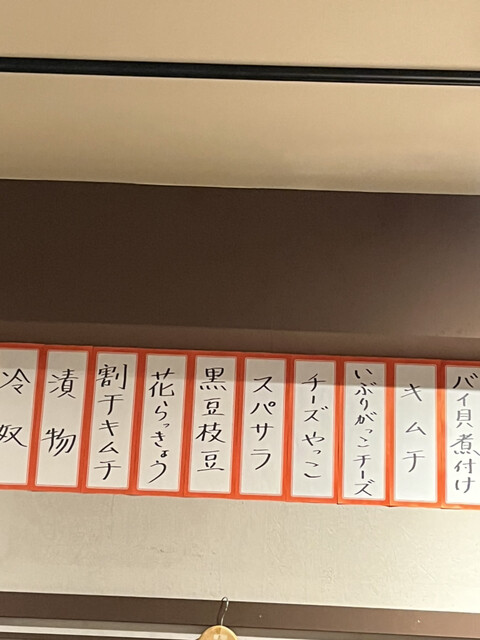 バイ貝煮付け
キムチ
いぶりがっこチーズ
チーズやっこ
スパサラ
黒豆枝豆
花らっきょう
割干キムチ
漬物
冷奴